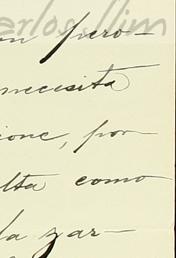 Carlos Ilim
on pero-
necesita
ione, por
lta como
la zar-